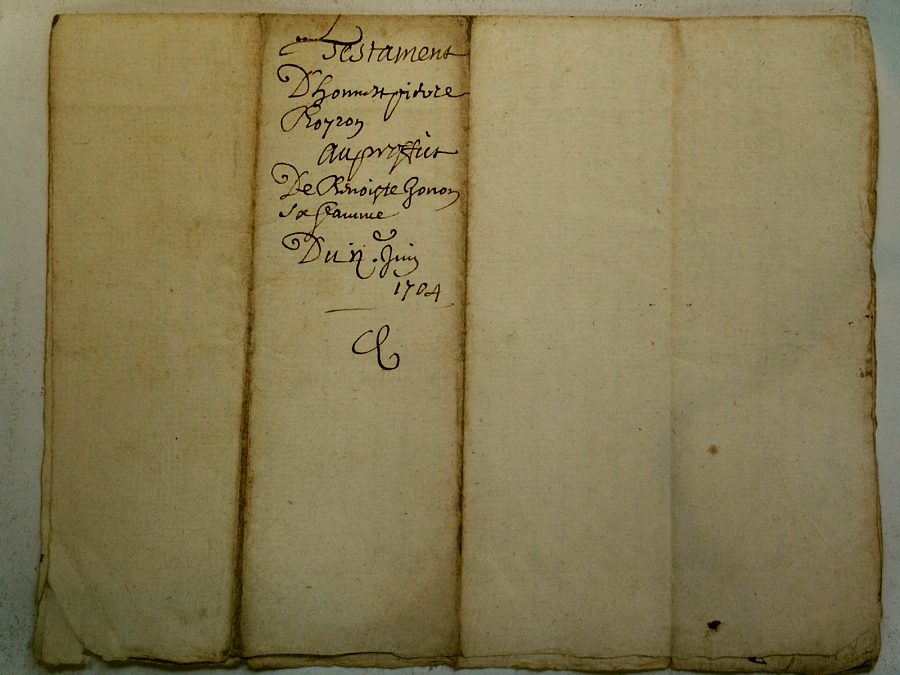 Testament
D'honnest pierre
Royron
au proffict
De Benoiste Gonon
sa femme
Du Juin
1704